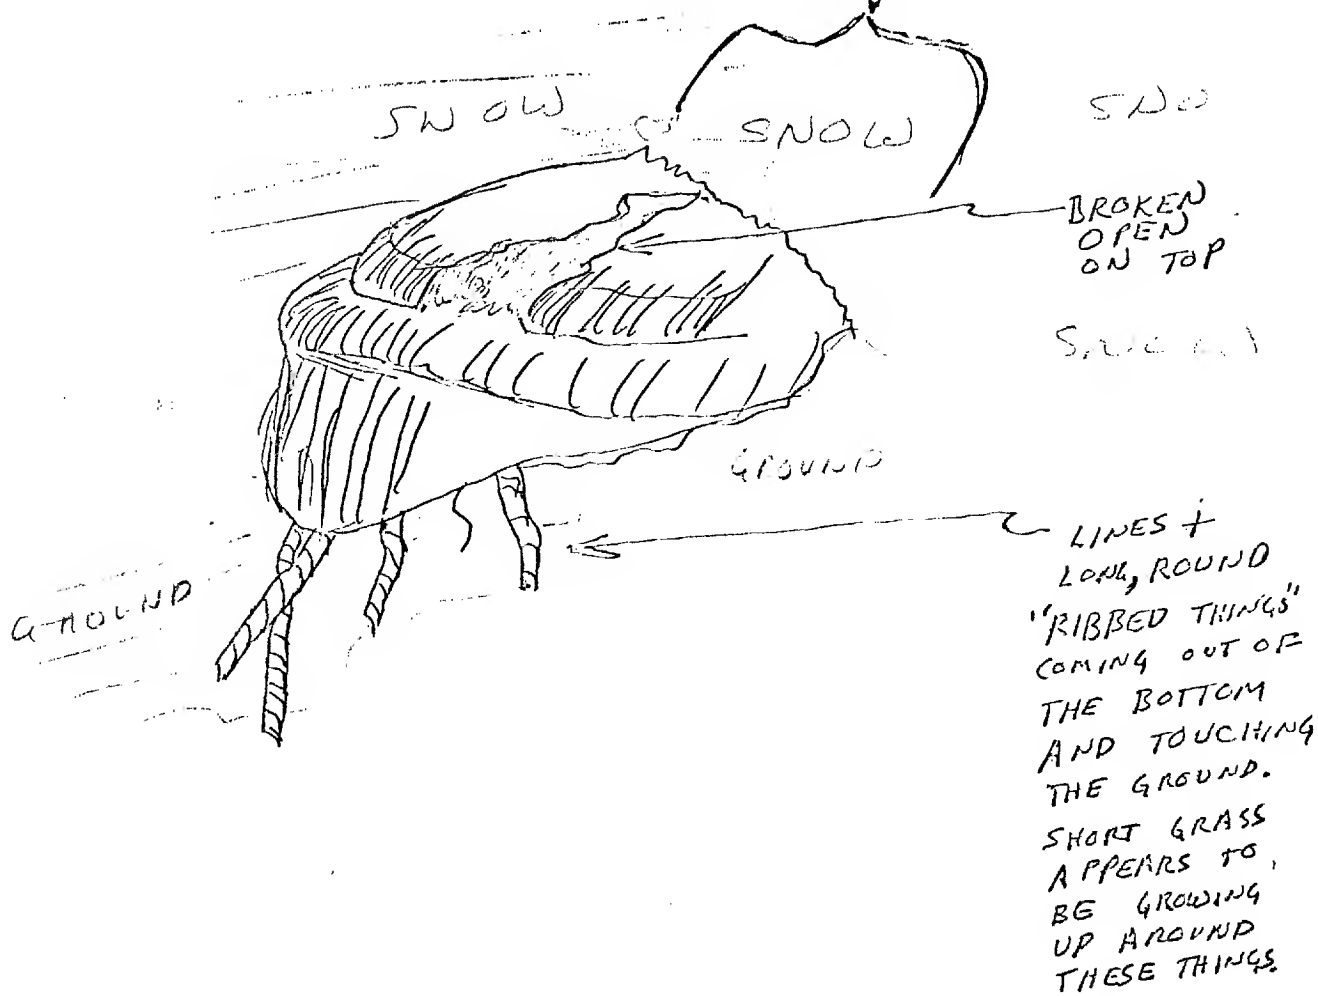 SNOW
SNOW
SNO
BROKEN
OPEN
ON TOP
GROUND
GROUND
LINES +
LONG, ROUND
"RIBBED THINGS"
COMING OUT OF
THE BOTTOM
AND TOUCHING
THE GROUND.
SHORT GRASS
APPEARS TO
BE GROWING
UP AROUND
THESE THINGS.